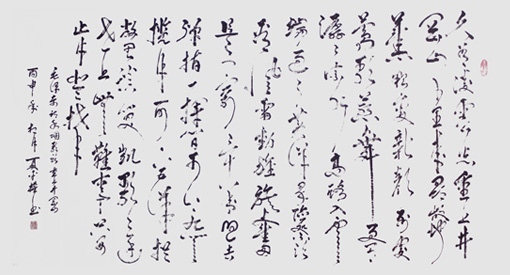 久有凌云志重上井
冈山千里来寻故地
旧貌变新颜到处
莺歌燕舞更有
潺潺流水高路入云
端过了黄洋界险处不
须看风雷动旌旗奋
是人寰三十八年过去
弹指一挥间可上九天
揽月可下五洋捉
鳖谈笑凯歌还
世上无难事只要
肯登攀
毛泽东词水调歌头重上井冈山
丙申年